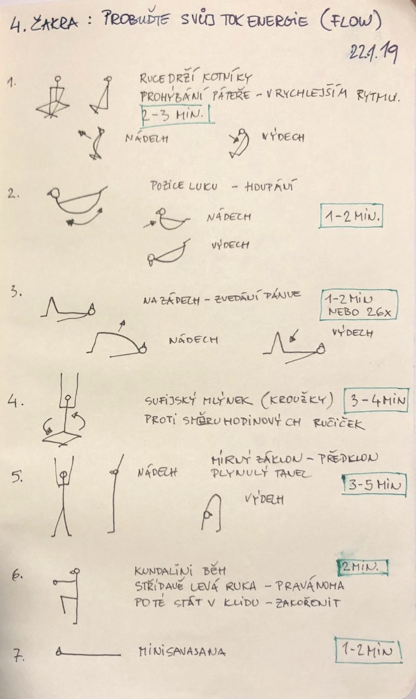 4. ŽAKRA: PROBUĎTE SVŮJ TOK ENERGIE (FLOW)
22.1.19
1. RUCE DRŽÍ KOTNÍKY
PROHÝBÁNÍ PÁTEŘE - V RYCHLEJŠÍM RYTMU.
2-3 MIN.
NÁDECH VÝDECH
2. POZICE LUKU - HOUPÁNÍ
NÁDECH 1-2 MIN.
VÝDECH
3. NA ZÁDECH - ZVEDÁNÍ PÁNVE 1-2 MIN
NEBO 26X
NÁDECH VÝDECH
4. SUFIJSKÝ MLÝNEK (KROUŽKY) 3-4 MIN
PROTI SMĚRU HODINOVÝCH RUČIČEK
5. NÁDECH MÍRNÝ ZÁKLON - PŘEDKLON
PLYNULÝ TANEC 3-5 MIN
VÝDECH
6. KUNDALINI BĚH 2 MIN.
STŘÍDAVĚ LEVÁ RUKA - PRAVÁ NOHA
POTÉ STÁT V KLIDU - ZAKOŘENIT
7. MINISAVASANA 1-2 MIN